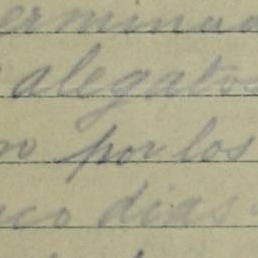 erminad
alegatos
por los
dias